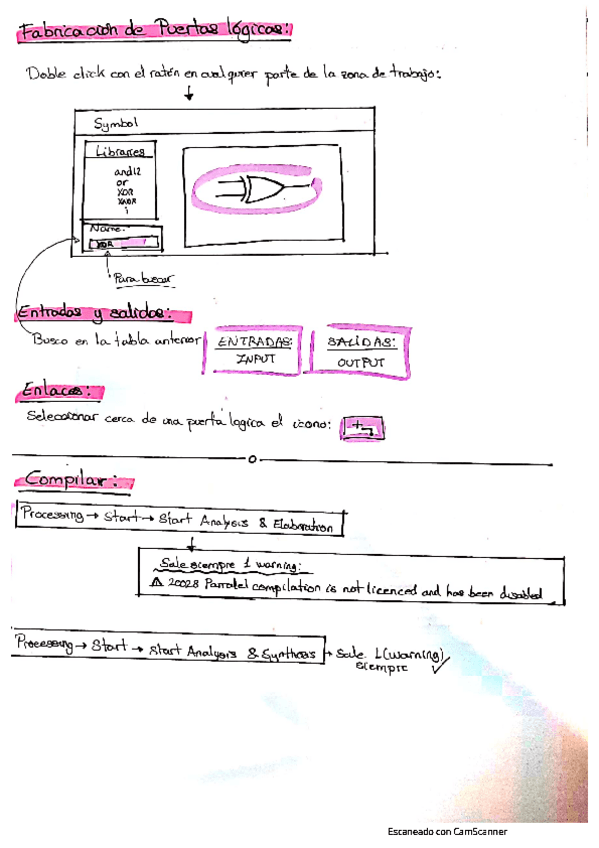 Fabricación de Puertas lógicas:
Doble click con el ratón en cualquier parte de la zona de trabajo:
Symbol
Libraries
and12
or
XOR
XNOR
Name:
XOR
Para buscar
Entradas y salidas:
Busco en la tabla anterior
ENTRADAS:
INPUT
SALIDAS:
OUTPUT
Enlaces:
Seleccionar cerca de una puerta logica el icono:
Compilar:
Processing → Start → Start Analysis & Elaboration
Sale siempre 1 warning:
⚠ 20028 Parralel compilation is not licenced and has been disabled
Processing → Start → Start Analysis & Synthesis → Sale 1 (warning)
siempre ✓
Escaneado con CamScanner